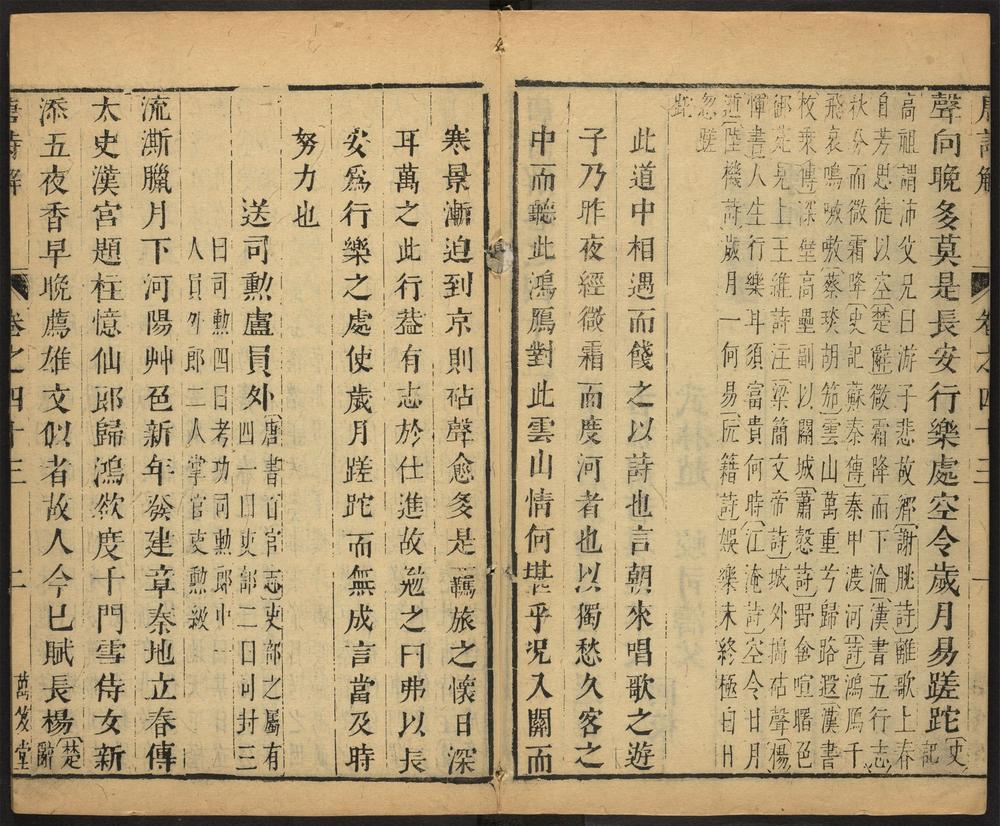 唐詩解 卷之四十三 一
聲向晚多莫是長安行樂處空令歲月易蹉跎史記
高祖謂沛父兄曰游子悲故鄉謝朓詩離歌上春
自芳思徒以空楚辭微霜降而下淪漢書五行志
秋分而微霜降史記蘇秦傳秦甲渡河詩鴻鴈千
飛哀鳴嗷嗷蔡琰胡笳雲山萬重兮歸路遐漢書
枚乘傳深壁高壘副以關城蕭慤詩野禽喧曙色
御苑見上王維詩注梁簡文帝詩城外搗砧聲楊
惲書人生行樂耳須富貴何時江淹詩空令日月
逝陸機詩歲月一何易阮籍詩娛樂未終極白日
忽蹉
跎
此道中相遇而餞之以詩也言朝來唱歌之遊
子乃昨夜經微霜而度河者也以獨愁久客之
中而聽此鴻鴈對此雲山情何堪乎況入關而
寒景漸迫到京則砧聲愈多是羈旅之懷日深
耳萬之此行葢有志於仕進故勉之曰弗以長
安爲行樂之處使歲月蹉跎而無成言當及時
努力也
送司勳盧員外唐書百官志吏部之屬有
四一曰吏部二曰司封三
曰司勳四曰考功司勳郎中一
人員外郎二人掌官吏勳級
流澌臘月下河陽艸色新年發建章秦地立春傳
太史漢宮題柱憶仙郎歸鴻欲度千門雪侍女新
添五夜香早晚薦雄文似者故人今已賦長楊楚辭
唐詩解 卷之四十三 二 萬笈堂